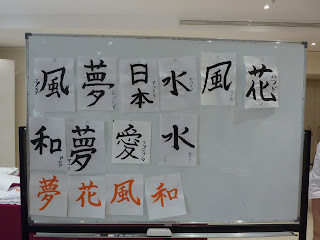 風 夢 日本 水 風 花
和 夢 愛 水
夢 花 風 和